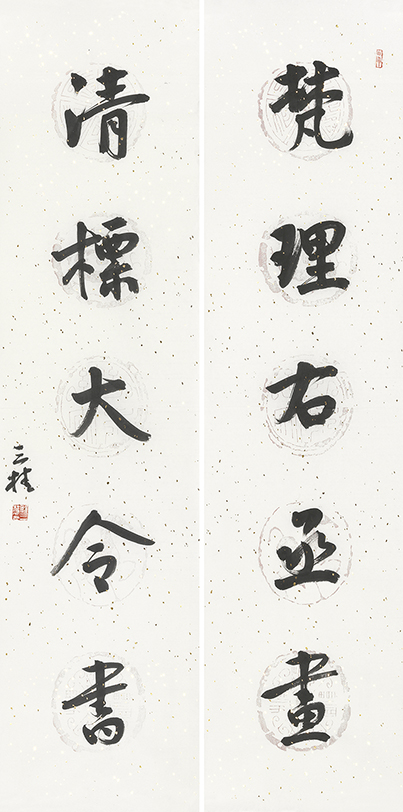 梵理右丞畫
清標大令書
三桂